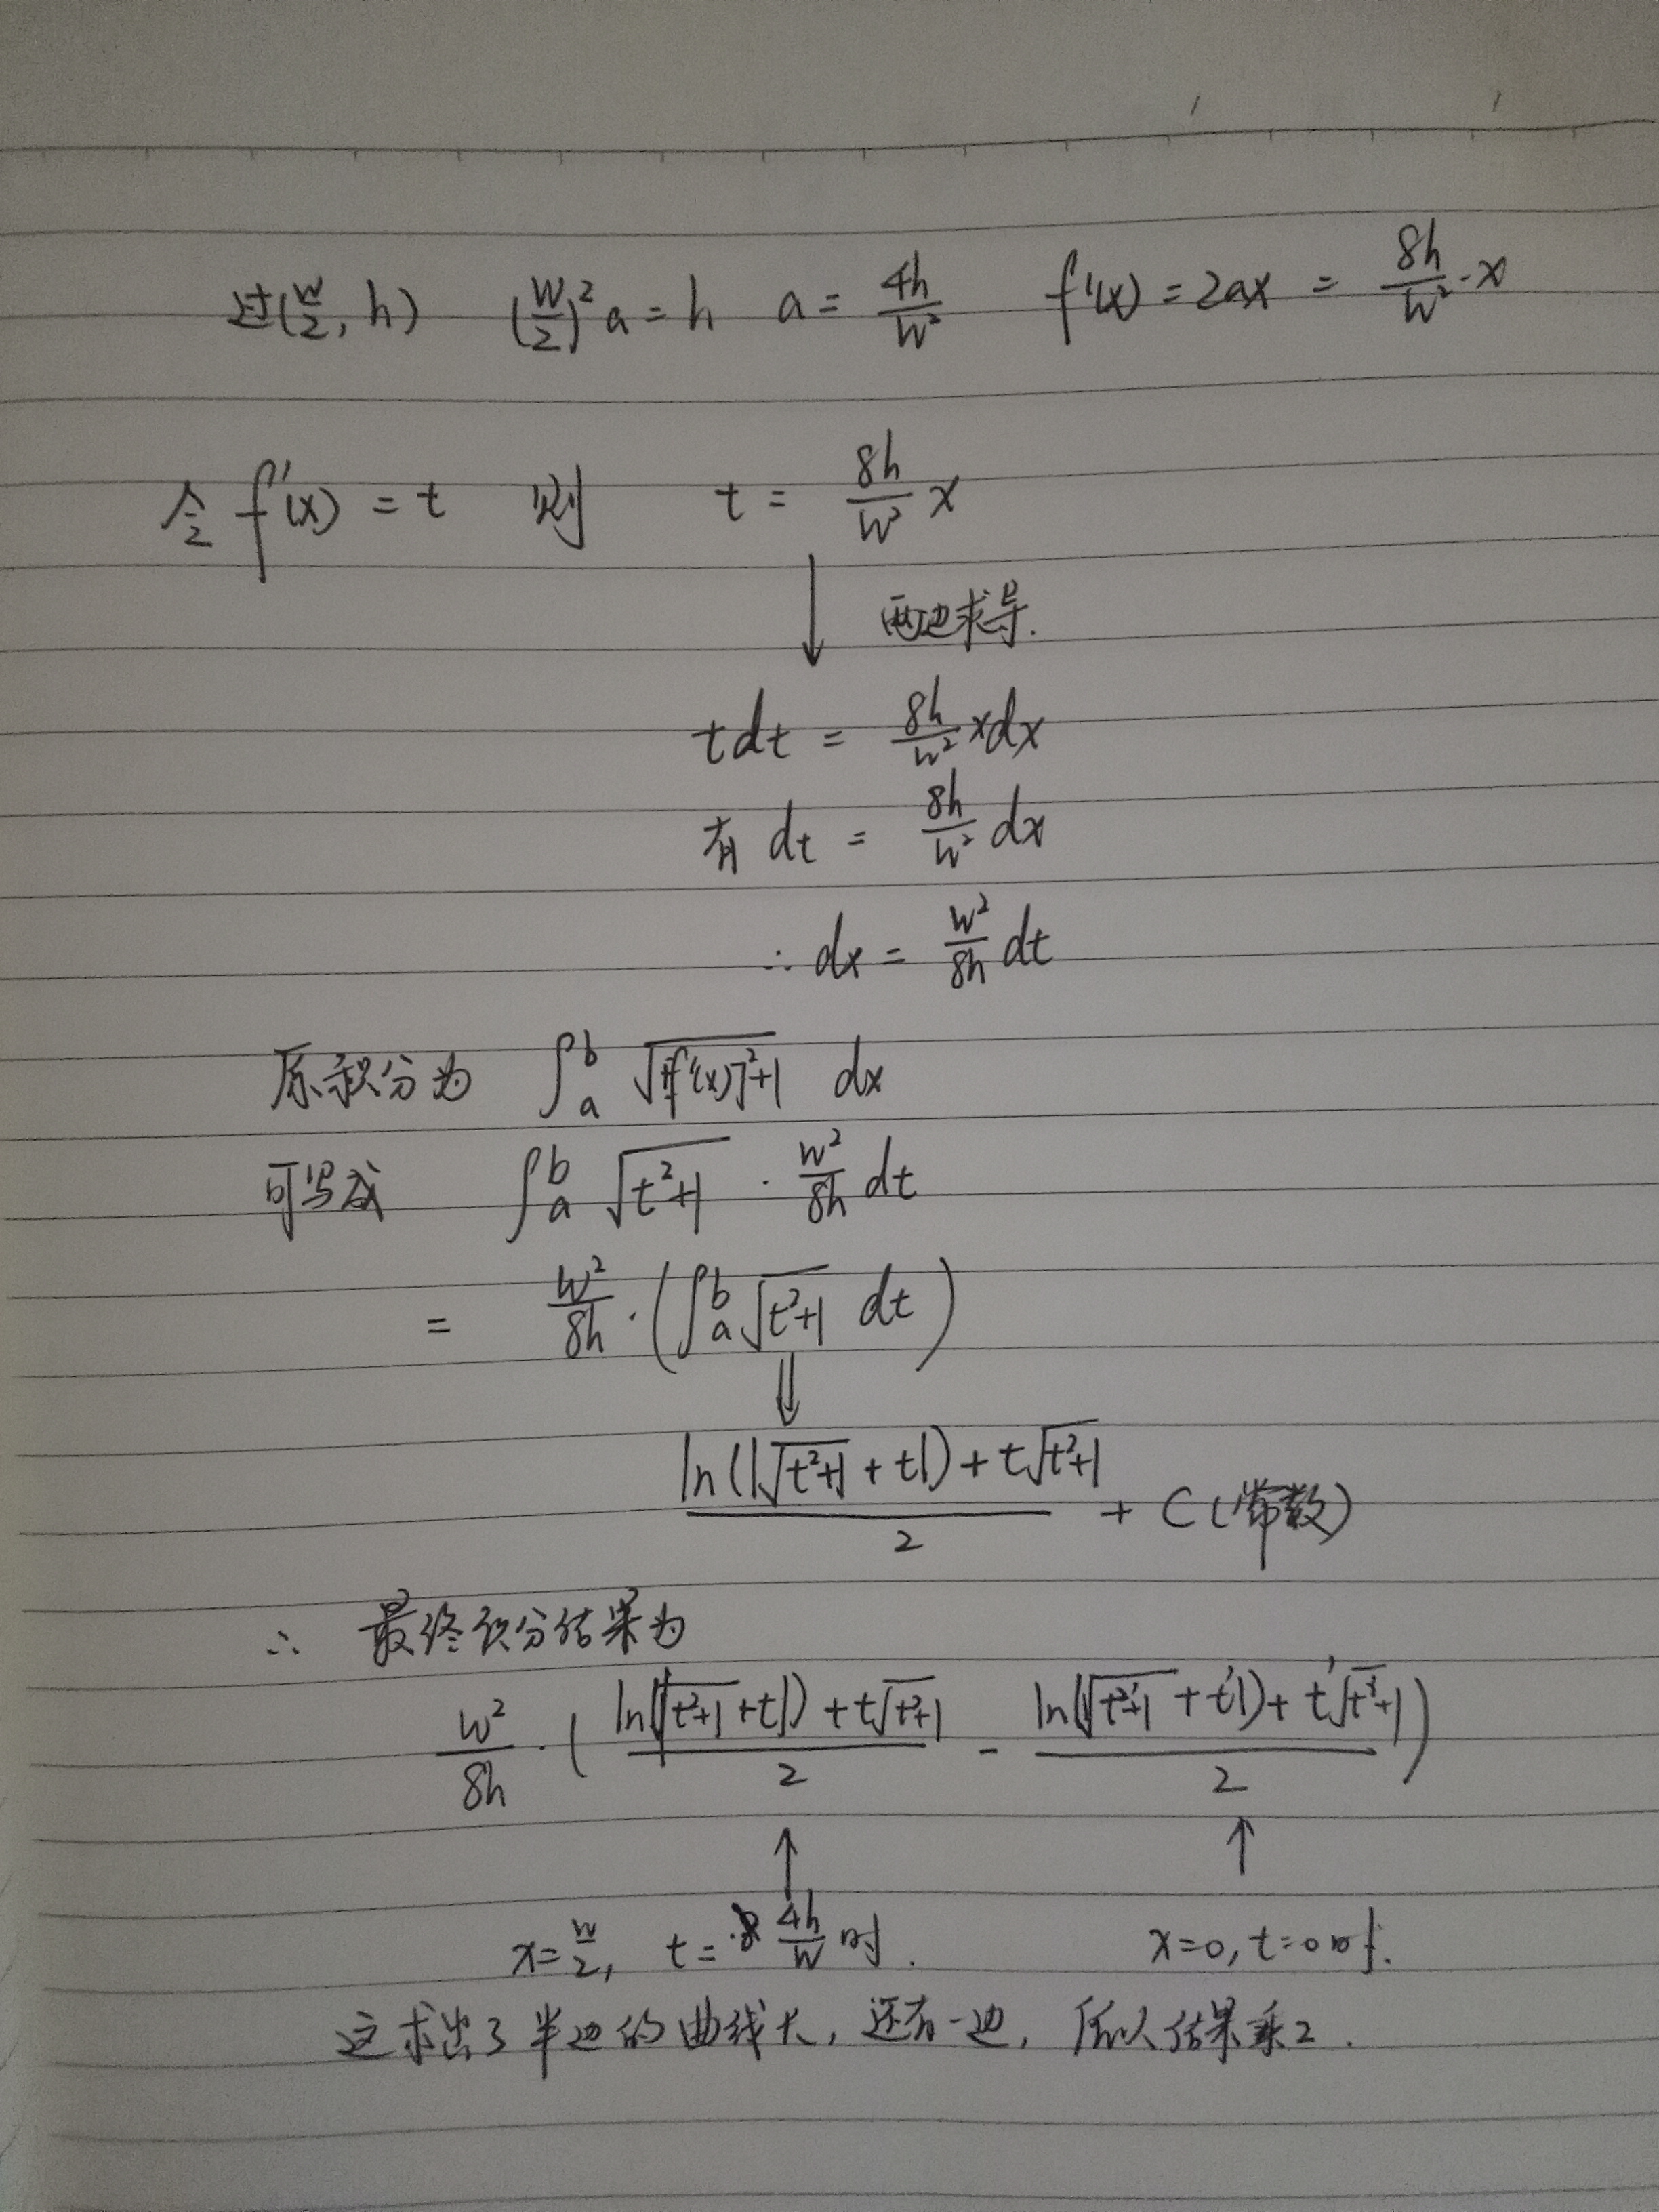 过(w/2, h) (w/2)²a = h a = 4h/w² f'(x) = 2ax = 8h/w² · x
令 f'(x) = t 则 t = 8h/w² x
两边求导.
tdt = 8h/w² xdx
有 dt = 8h/w² dx
∴ dx = w²/8h dt
原积分为 ∫ₐᵇ √([f'(x)]²+1) dx
可写成 ∫ₐᵇ √(t²+1) · w²/8h dt
= w²/8h · (∫ₐᵇ √(t²+1) dt)
(ln(|√(t²+1) + t|) + t√(t²+1))/2 + C (常数)
∴ 最终积分结果为
w²/8h · ((ln(|√(t²+1) + t|) + t√(t²+1))/2 - (ln(|√(t'²+1) + t'|) + t'√(t'²+1))/2)
x = w/2, t = 4h/w 时. x=0, t=0时.
这求出了半边的曲线长, 还有一边, 所以结果乘2.